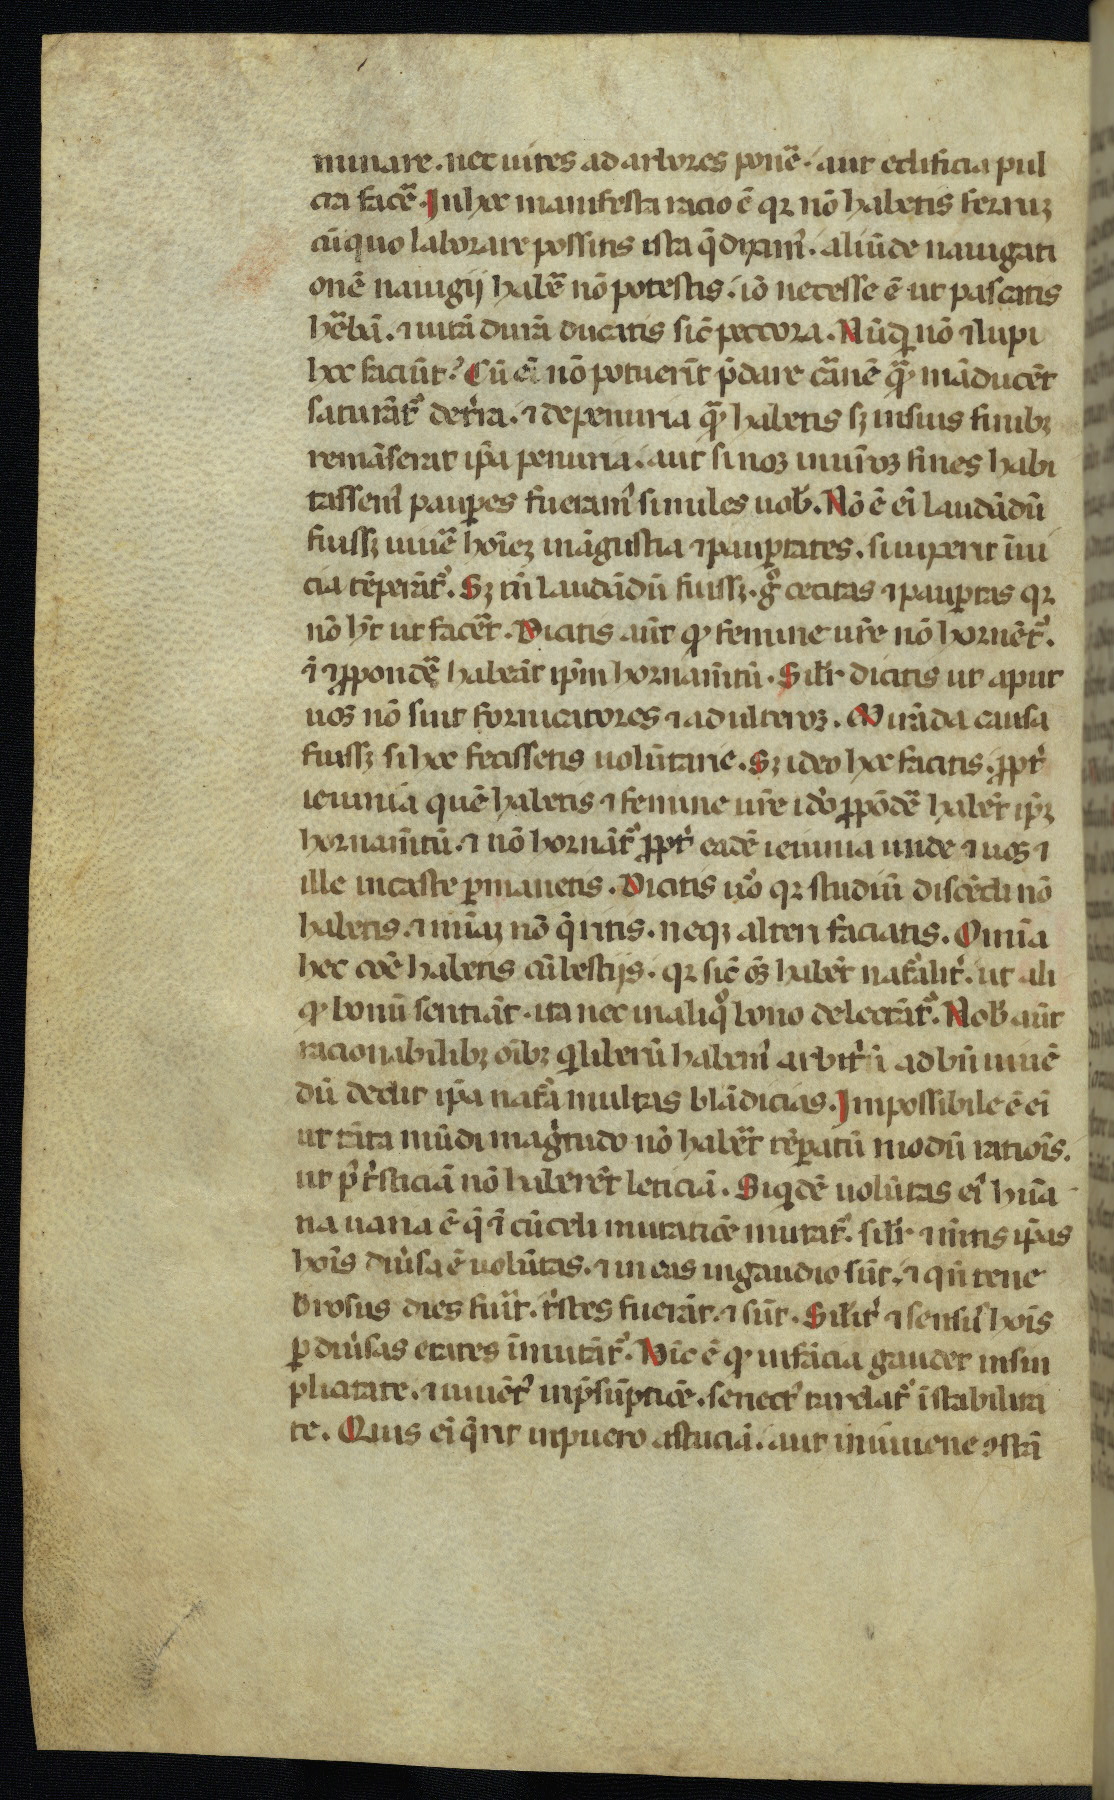 minare. nec uites ad arbores ponē. aut edificia pul
cra facē. In hoc manifesta racio ē qꝛ nō habetis ferruꝫ
cū quo laborare possitis ista q̄ dixim᾽. aliūde nauigati
onē nauigij habē nō potestis. iō necesse ē ut pascatis
hērbā. ⁊ uitā durā ducatis sic̄ peccora. Nūq̄d nō ⁊ lupi
hoc faciūt? Cū ei nō potuerīt p̄dare cārnē quā māducēt
saturāt᾽ de tr̄ra. ⁊ de penuria quā habetis sꝫ in suis finibꝫ
remāserat ip̄a penuria. aut si nos in ur̄oꝫ fines habi
tassem᾽ paupes fueram᾽ similes uob᾽. Nō ē ei laudādū
fuissꝫ uiuē hoīeꝫ in āgustia ⁊ pauꝑtates. si uixerit ī ui
cia tēperāt᾽. Sꝫ tm̄ laudādū fuissꝫ. gͦ cecitas ⁊ pauꝑtas qꝛ
nō hn̄t ut facēt. Dicitis aūt qͥ femine ur̄e nō hornēt᾽.
ī ꝓpondē habeāt ip̄m hornam̄tū. Silr̄ dicitis ut aput
uos nō sint fornicatores ⁊ adulteroꝫ. Mirāda causa
fuissꝫ si hoc fecissetis uolūtarie. Sꝫ ideo hoc facitis. ꝓpt᾽
ieiunia quē habetis ⁊ femine ur̄e ido ꝓpōdē habēt ip̄ꝫ
hornam̄tū. ⁊ nō hornāt᾽ ꝓpt᾽ eadē ieiunia unde ⁊ uos ⁊
ille in caste ꝑmanetis. Dicitis uͦo qꝛ studiū discēdi nō
habetis. ⁊ mīaꝫ nō q̄ritis. neqꝫ alteri faciatis. Omīa
hec coē habetis cū bestijs. qꝛ sic̄ os̄ habēt nat᾽alit᾽. ut ali
qͥ bonū sentiāt. ita nec in aliqͦ bono delectāt᾽. Nob᾽ aūt
racionabilibꝫ oībꝫ qͥ liberū habem᾽ arbitriū ad bn̄ uiuē
dū dedit ip̄a nat᾽a multas blādicias. Impossibile ē ei
ut tāta mūdi magītudo nō habēt tēꝑatū modū ratiōis.
ut p᾽ tr̄sticiā nō haberēt leticiā. Siq̄dē uolūtas ei᾽ hūa
na uaria ē q̄ ī cū celi mutatiōe mutat᾽. silr̄ ⁊ inīt᾽ ip̄as
hoīs diūsa ē uolūtas. ⁊ in eas in gaudio sūt. ⁊ qn̄ tene
brosus dies fuīt. tr̄stes fuerāt. ⁊ sūt. Silīt᾽ ⁊ sensu᾽ hoīs
ꝑ diūsas etates īmutāt᾽. Hic ē qͥ infācia gaudet in sim
plicitate. ⁊ iuuēt᾽ in p̄sūptiōe. senect᾽ tardat᾽ ī stabilita
te. Quis ei q̄rit in puero astuciā. aut in iuuene ꝯstā